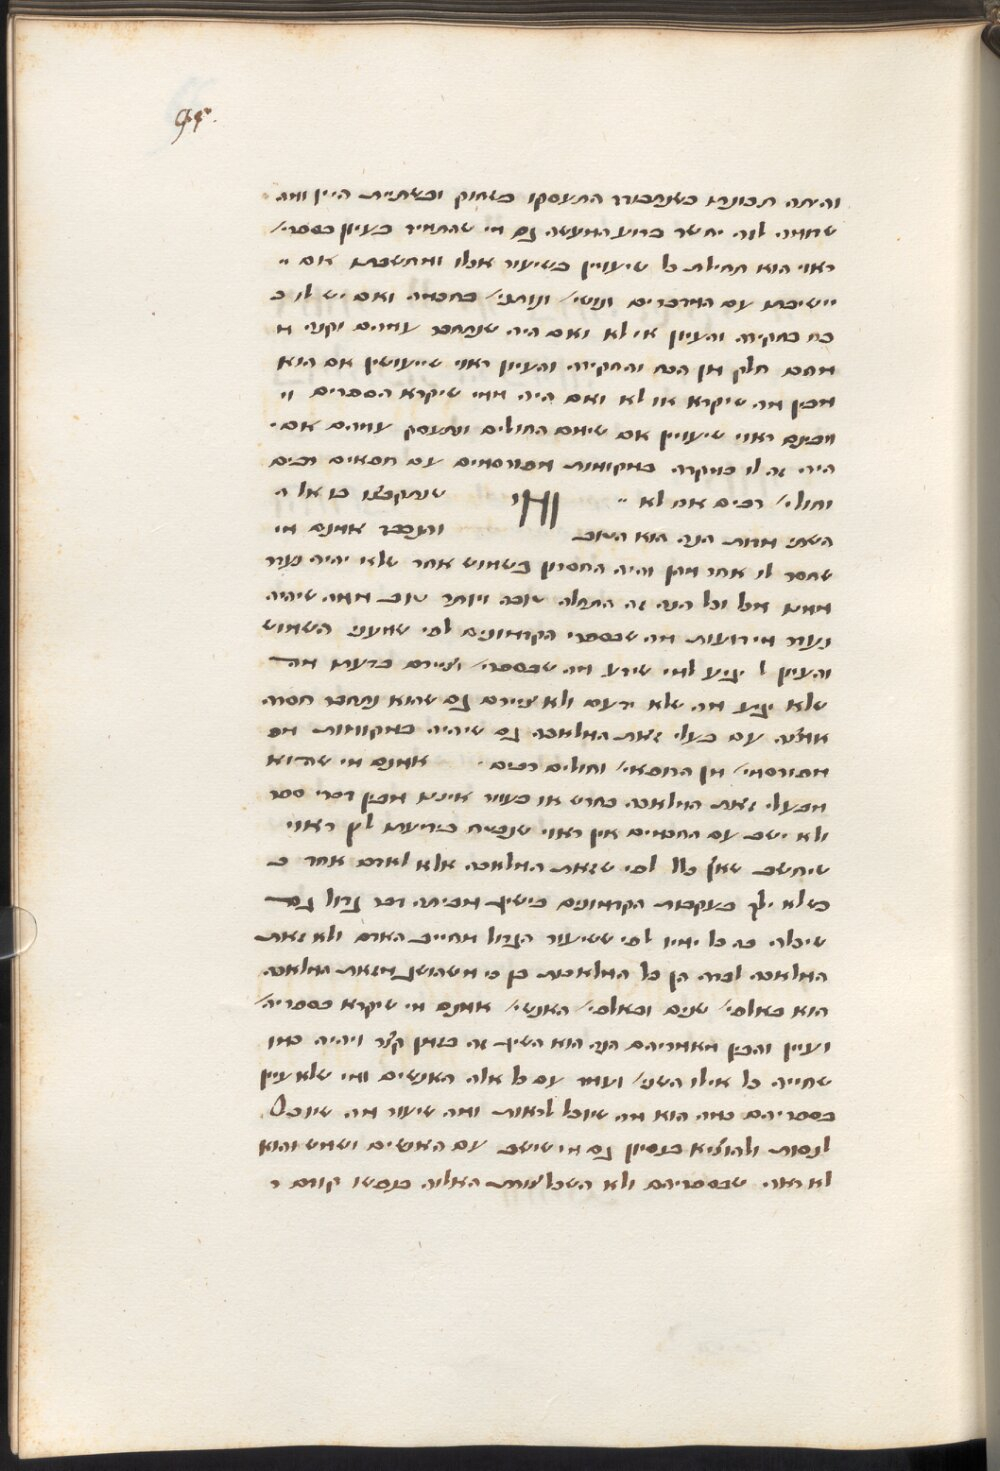 והיתה תכונתו כשנתבודד התעסקו בשחוק ובשתיית היין ומה
שדומה לזה יחשד ברוע המעשה גם מי שהתמיד בעיון בספרי/
ראוי הוא תחילת כל שיעויין בשיעור אכלו ומחשבתו אם
יישיבתו עם המדברים אנשי/ ונותני/ בחכמה ואם יש לו כ
כח בחקירה והעיון אי לא ואם היה שנתחבר עמהם וקנה מ
מהם חלק מן הכח והחקירה והעיון ראוי שייעויין אם הוא
מבין מה שיקרא או לא ואם היה ממי שיקרא הספרים וי
ויבינם ראוי שיעויין אם שימש החולים ונתעסק עמהם אם
היה זה לו במקרה במקומות מפורסמים עם רופאים רבים
וחולי/ רבים אם לא ואי שנתקבצו בו אלה
השתי מדות הנה הוא הטוב והנבחר אמנם מי
שחסר לו אחד מהן והיה החסרון בשמוש אחד שלא יהיה נעדר
ממנו מכל וכל הנה זה התחלה טובה ויותר טוב ממה שיהיה
נעדר מידיעות מה שבספרי הקדמונים לפי שמעט השמוש
והעיון ל יגיע למי שידע מה שבספרי/ וציירם בדעתו מה
שלא יגיע מה שלא ידעם ולא ציירם גם שהוא נתחבר חברה
ארוכה עם בעלי זאת המלאכה גם שיהיה במקומות מפ
מפורסמי/ מן הרופאי/ וחולים רבים אמנם מי שהוא
מבעלי זאת המלאכה כחרש או כעור אינו מבין דברי ספר
ולא ישב עם החכמים אין ראוי שנבטח בידיעתו לכן ראוי
שיחשב שאין כלל לפי שזאת המלאכה אלא לאדם אחד כ
כשלא ילך בעקבות הקדמונים בישיג מביתה דבר גדול גם
שיכלה בה כל ימיו לפי ששיעור הגדול מחייב האדם ולא זאת
המלאכה לבדה הן כל המלאכות כן כי משהושג מזאת המלאכה
הוא באלפי/ שנים ובאלפי/ האנשי/ אמנם מי שיקרא בספריה/
ועיין והבין מאמריהם הנה הוא השיג זה בזמן קצר ויהיה כמו
שחייה כל אילו השני/ ועמד עם כל אלה האנשים ומי שלא עיין
בספריהם כמה הוא מה שיוכל לראות ומה שיעור מה שיוכל
לנסות ולהוציא בנסיון גם מי שישב עם האנשים ושמש והוא
לא ראה שבספריהם ולא השכל צורת האלוה בנפשו קודם ר